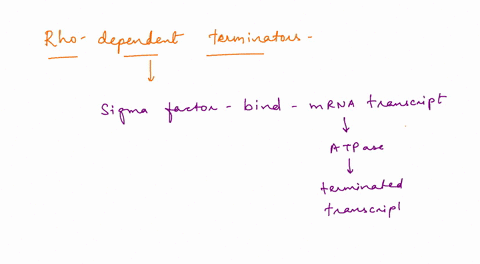 Rho- dependent terminators -
Sigma factor - bind - mRNA transcript
ATPase
terminated
transcript